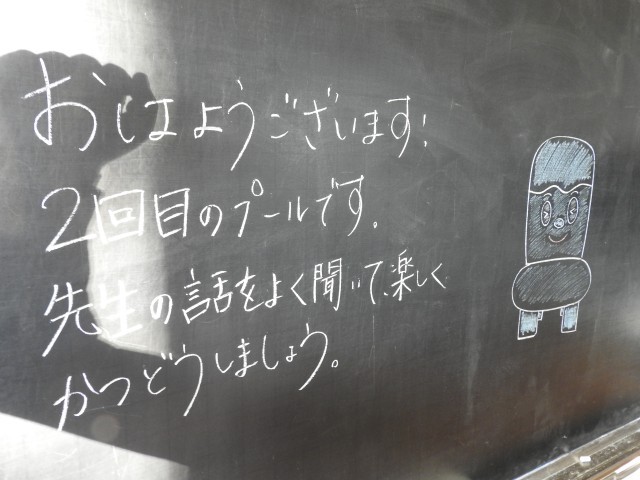 おはようございます!
2回目のプールです。
先生の話をよく聞いて、楽しく
かつどうしましょう。